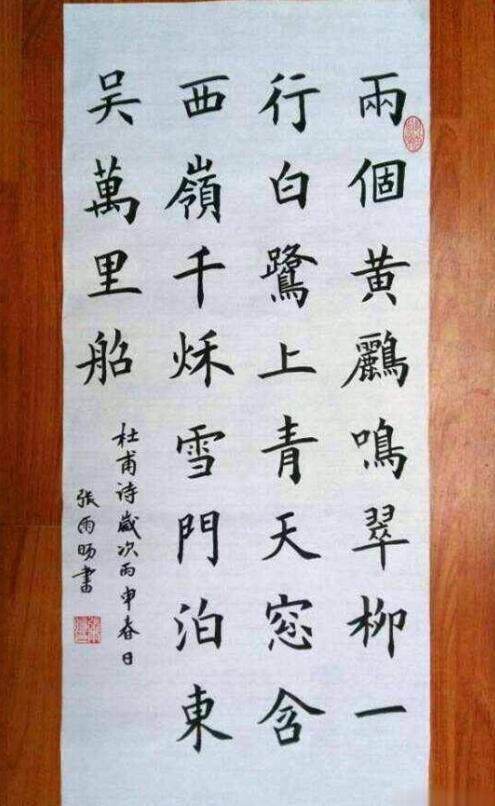 兩個黄鸝鳴翠柳一
行白鷺上青天窓含
西嶺千秌雪門泊東
吴萬里船
杜甫诗歲次丙申春日
張雨昉書